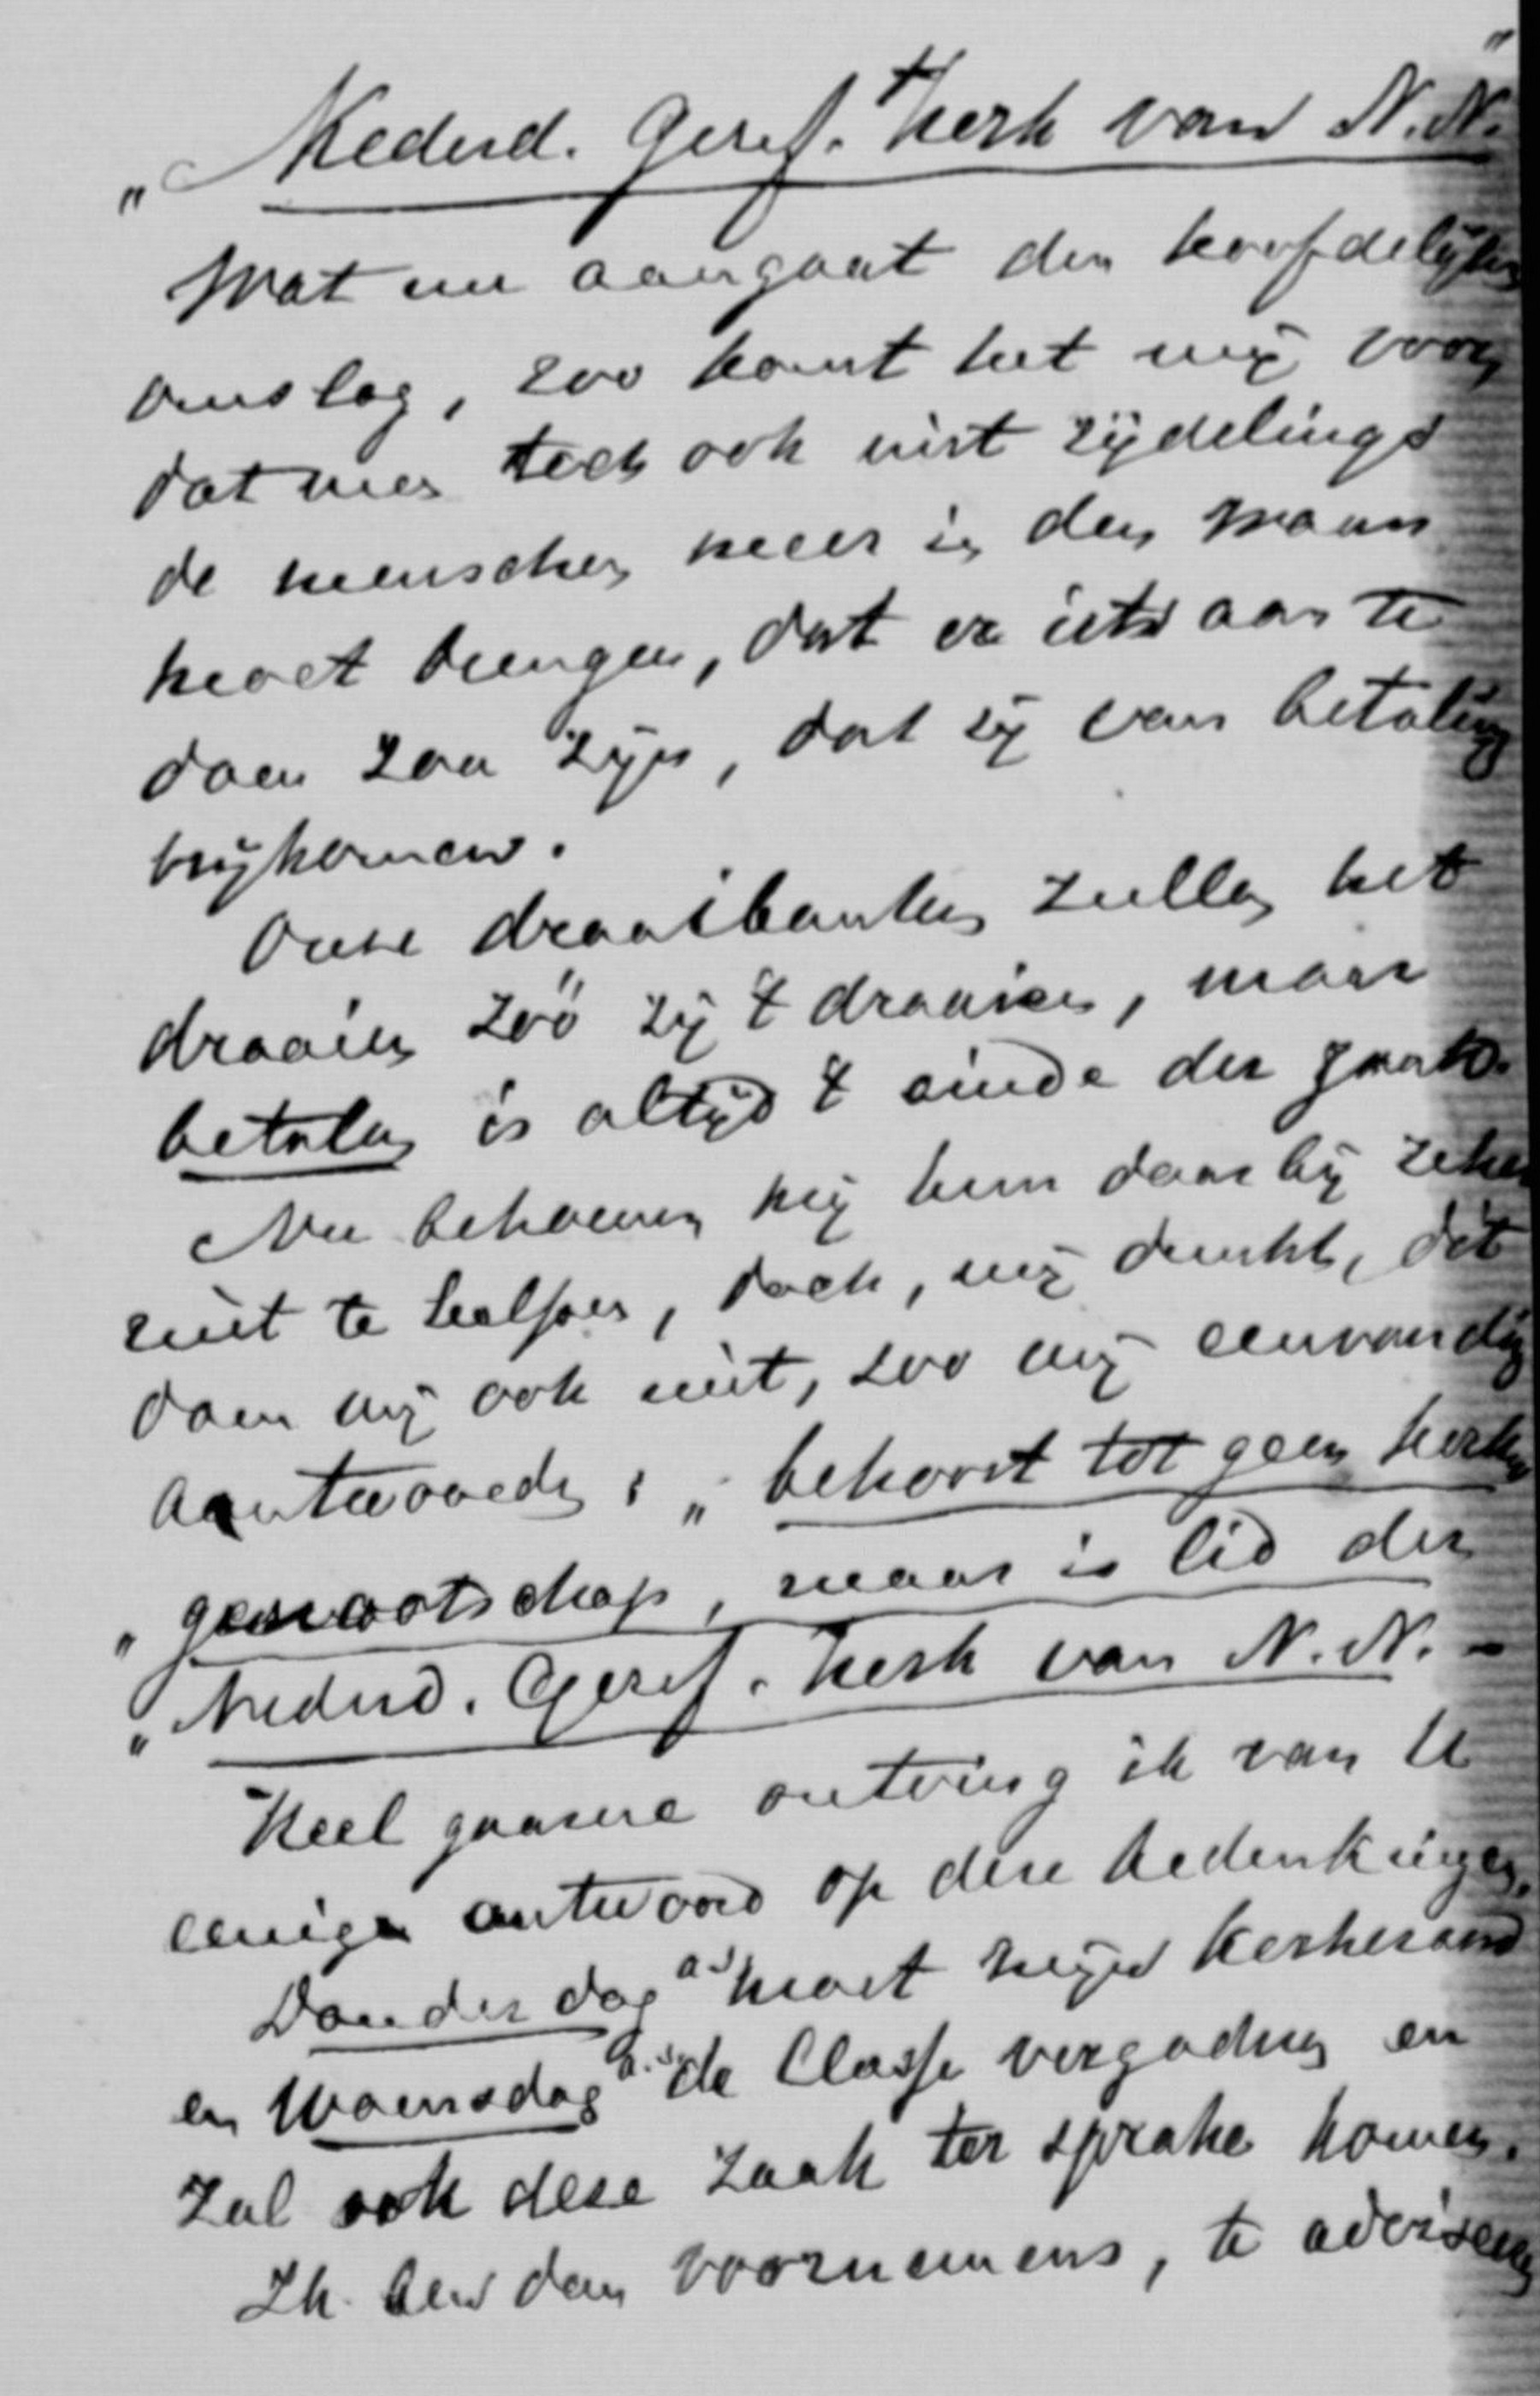 „Nederd. Geref. Kerk van N.N."
Wat nu aangaat den hoofdelijken
omslag, zoo komt het mij voor,
dat men toch ook niet zijdelings
de menschen meer in den waan
moet brengen, dat er iets aan te
doen zou zijn, dat zij van betaling
vrijkomen.
Onze draaibanken zullen het
draaien zóó zij 't draaien, maar
betalen is altijd 't einde der zaak.
Nu behoeven wij hun daarbij zeker
niet te helpen, doch, mij dunkt, dit
doen wij ook niet, zoo wij eenvoudig
antwoorden: „behoort tot geen kerk-
„genootschap, maar is lid der
„Nederd. Geref. Kerk van N.N. -
Heel gaarne ontving ik van U
eenige antwoord op deze bedenkingen.
Donderdag a.s. moet mijn kerkeraad
en Woensdag a.s. de Classe vergaderen en
zal ook deze zaak ter sprake komen.
Ik ben dan voornemens, te adviseeren